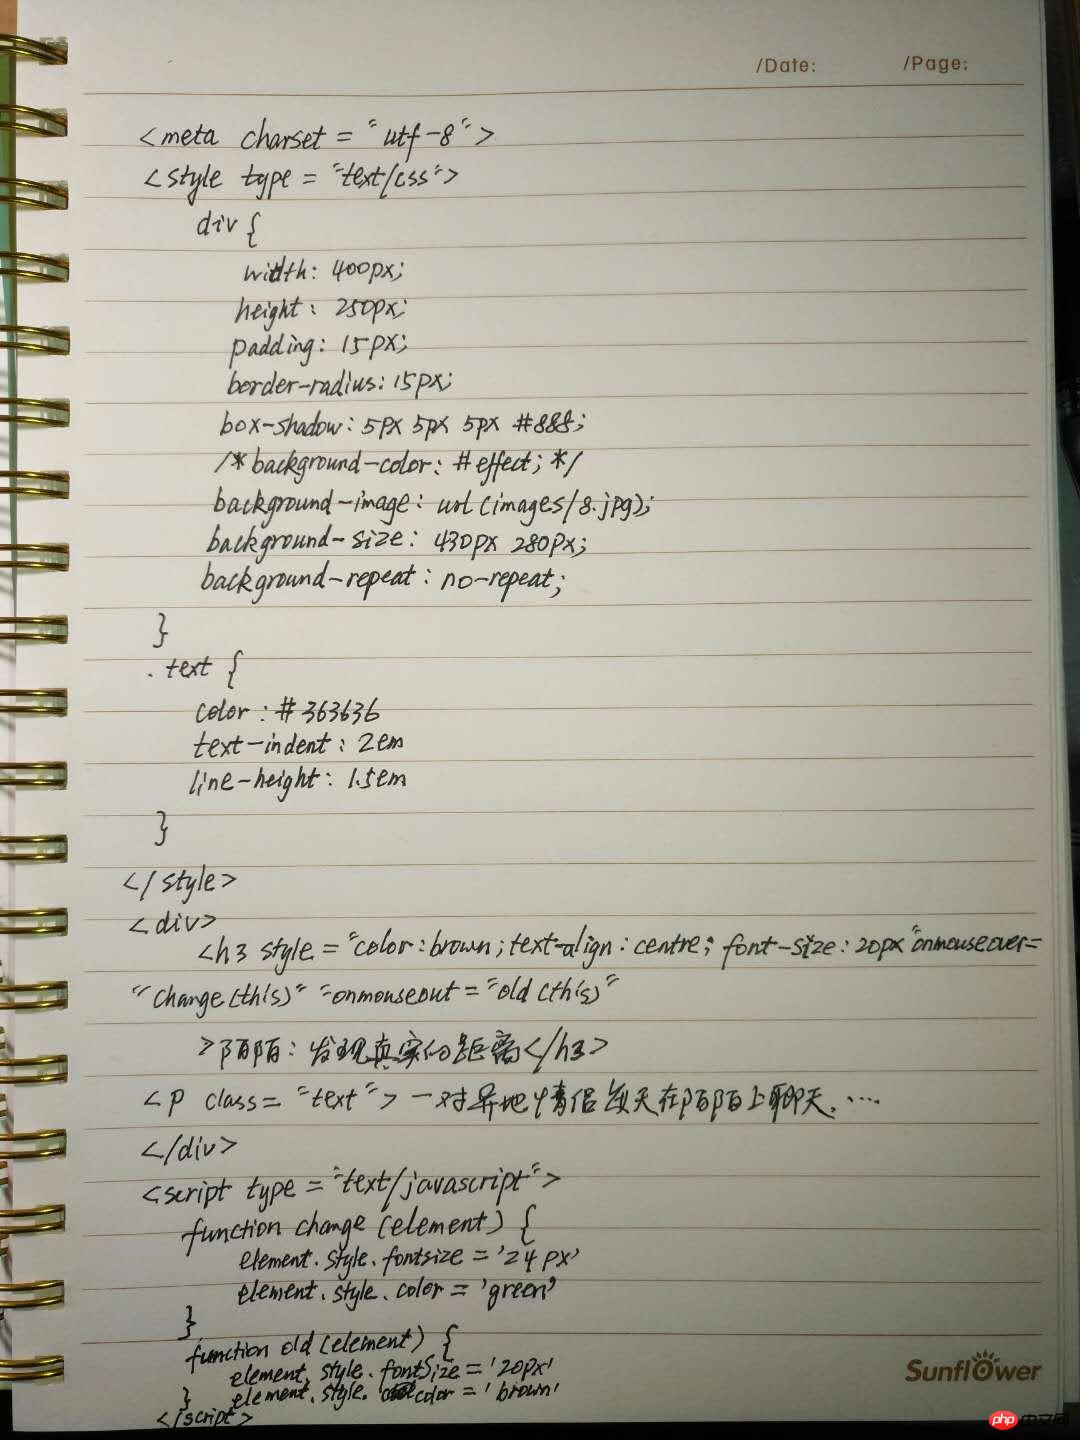 /Date: /Page:
<meta charset = "utf-8">
<style type = "text/css">
div {
width: 400px;
height: 250px;
padding: 15px;
border-radius: 15px;
box-shadow: 5px 5px 5px #888;
/*background-color: #effect; */
background-image: url (images/8.jpg);
background-size: 430px 280px;
background-repeat: no-repeat;
}
.text {
color : # 363636
text-indent : 2em
line-height : 1.5em
}
</style>
<div>
<h3 style = "color : brown; text-align : centre; font-size : 20px "onmouseover=
"change(this)" "onmouseout = "old (this)"
>陌陌：发现真实的距离</h3>
<p class= "text"> 一对异地情侣每天在陌陌上聊天. ···
</div>
<script type = "text/javascript">
function change (element) {
element. style. fontsize = '24px'
element. style. color = 'green'
}
function old (element) {
element. style. fontSize = '20px'
} element. style. color = 'brown'
</script>
Sunflower
php 中文网